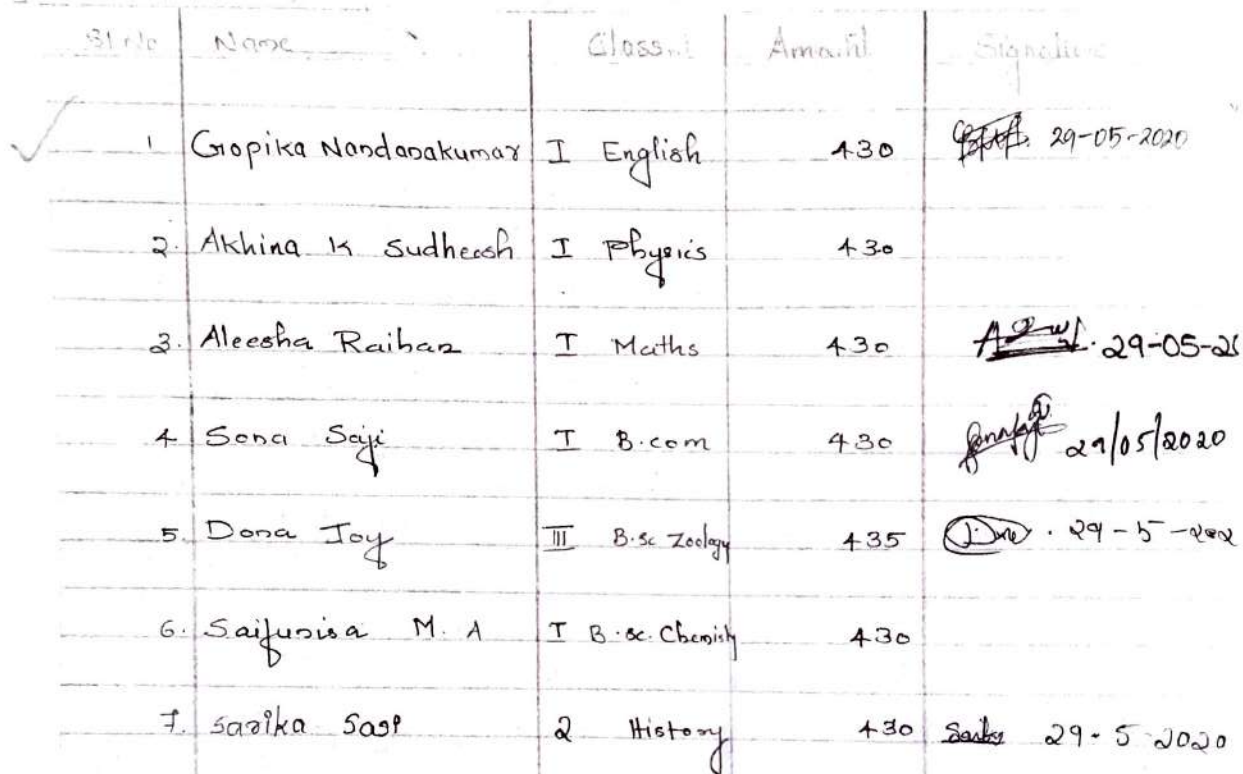 Sl No Name Class Amount Signature
1 Gopika Nandanakumar I English 430 29-05-2020
2. Akhina K Sudheesh I Physics 430
3. Aleesha Raihan I Maths 430 29-05-20
4 Sona Saji I B.com 430 29/05/2020
5. Dona Joy III B.sc Zoology 435 29-5-202
6. Saifunisa M. A I B.sc. Chemisty 430
7. Sarika Sasi 2 History 430 29-5-2020